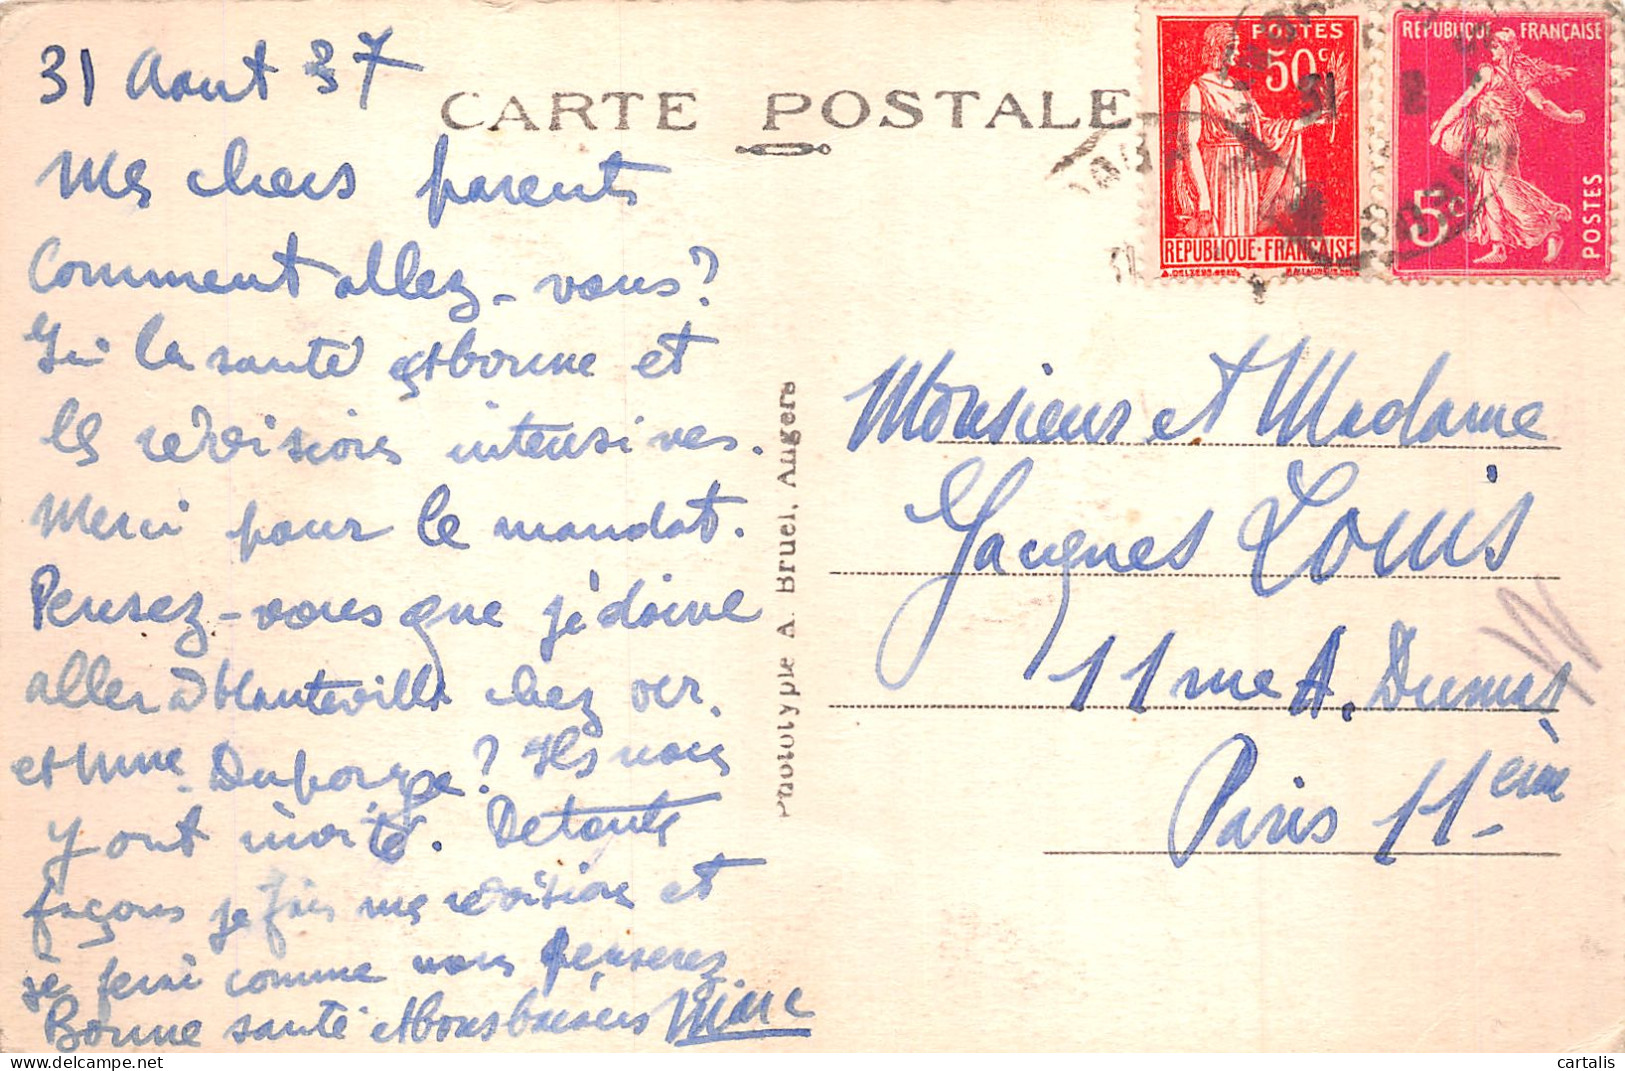 31 Aout 37
CARTE POSTALE
Mes chers parents
Comment allez-vous?
Ici la santé est bonne et
les révisions intensives.
Merci pour le mandat.
Pensez-vous que je doive
aller à Hauteville chez Mr.
et Mme. Duporge? Ils nous
y ont invité. Detoute
façons je fais mes révisions et
je ferai comme vous penserez
Bonne santé et bons baisers
Phototypie A. Bruel, Angers
POSTES
50c
31
REPUBLIQUE·FRANÇAISE
REPUBLIQUE FRANÇAISE
5c
POSTES
Monsieur et Madame
Jacques Louis
11 rue A. Dumas
Paris 11ème
cartalis
delcampe.net